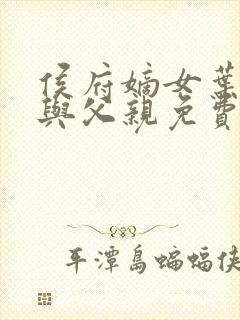 侯府嫡女葉
與父親免費
平潭島蝙蝠俠